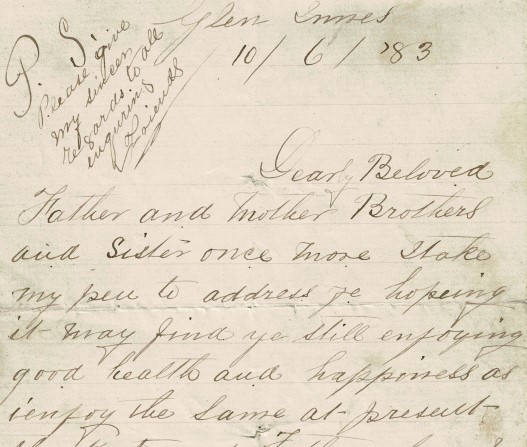 Glen Innes
10/6/83
P.S.
Please give
my sincere
regards to all
inquiring
Friends
Dearly Beloved
Father and Mother Brothers
and Sister once more I take
my pen to address ye hopeing
it may find ye still enjoying
good health and happiness as
i enjoy the same at present